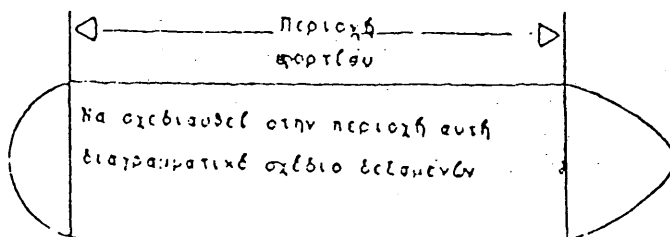 Περιοχή
φορτίου
Να σχεδιασθεί στην περιοχή αυτή
διαγραμματικό σχέδιο δεξαμενών